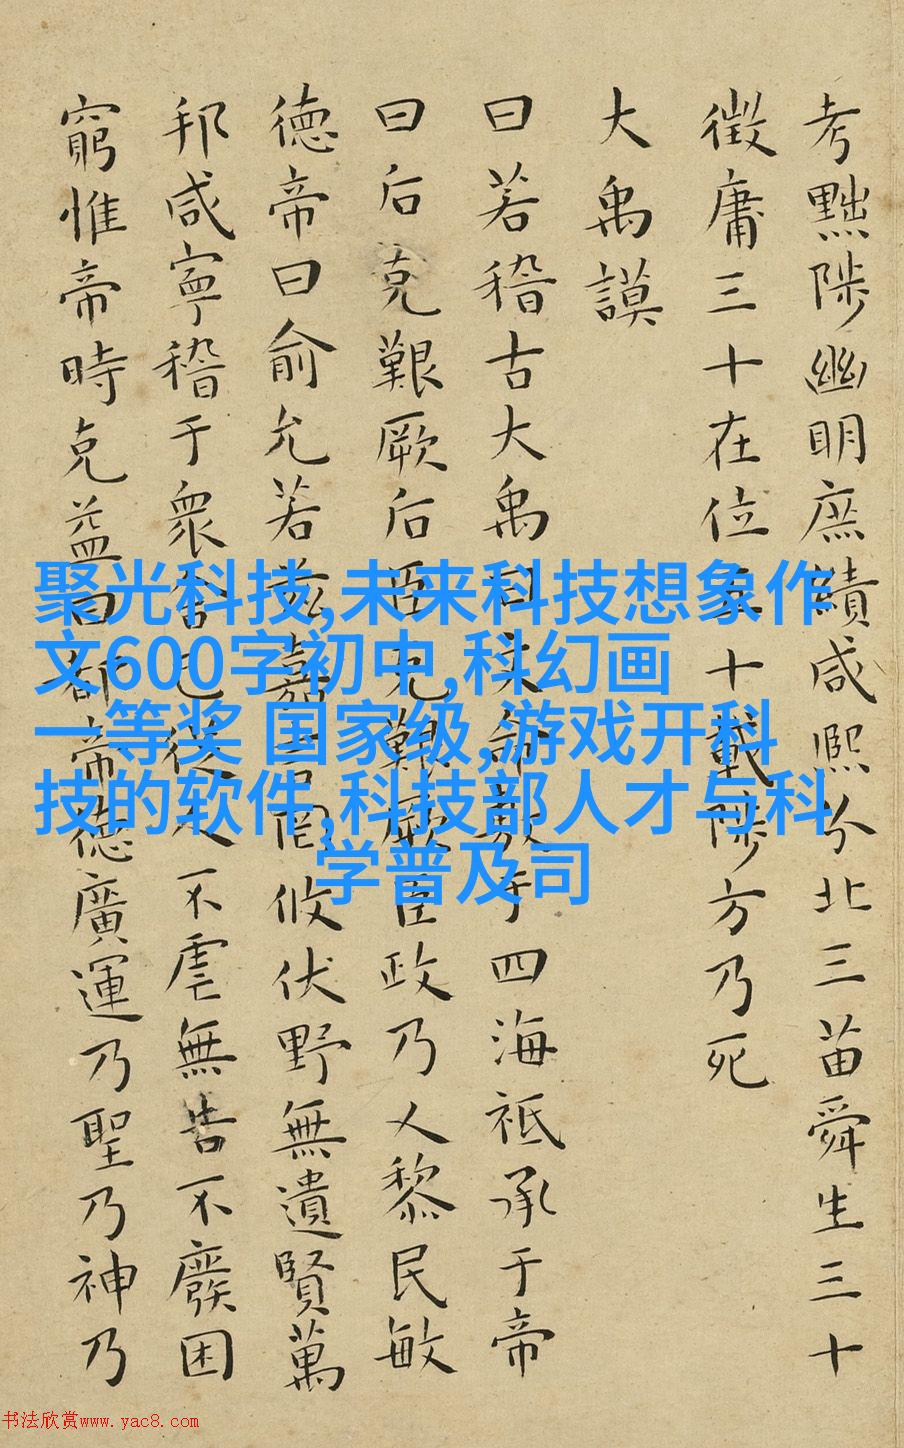 考黜陟幽明庶績咸熙分北三苗舜生三十
徵庸三十在位五十載陟方乃死
大禹謨
曰若稽古大禹曰文命敷于四海祗承于帝
曰后克艱厥后臣克艱厥臣政乃乂黎民敏
德帝曰俞允若茲嘉言罔攸伏野無遺賢萬
邦咸寧稽于衆舍己從人不虐無告不廢困
窮惟帝時克益曰都帝德廣運乃聖乃神乃
聚光科技,未来科技想象作
文600字初中,科幻画
一等奖 国家级,游戏开科
技的软件,科技部人才与科
学普及司
书法欣赏www.yac8.com